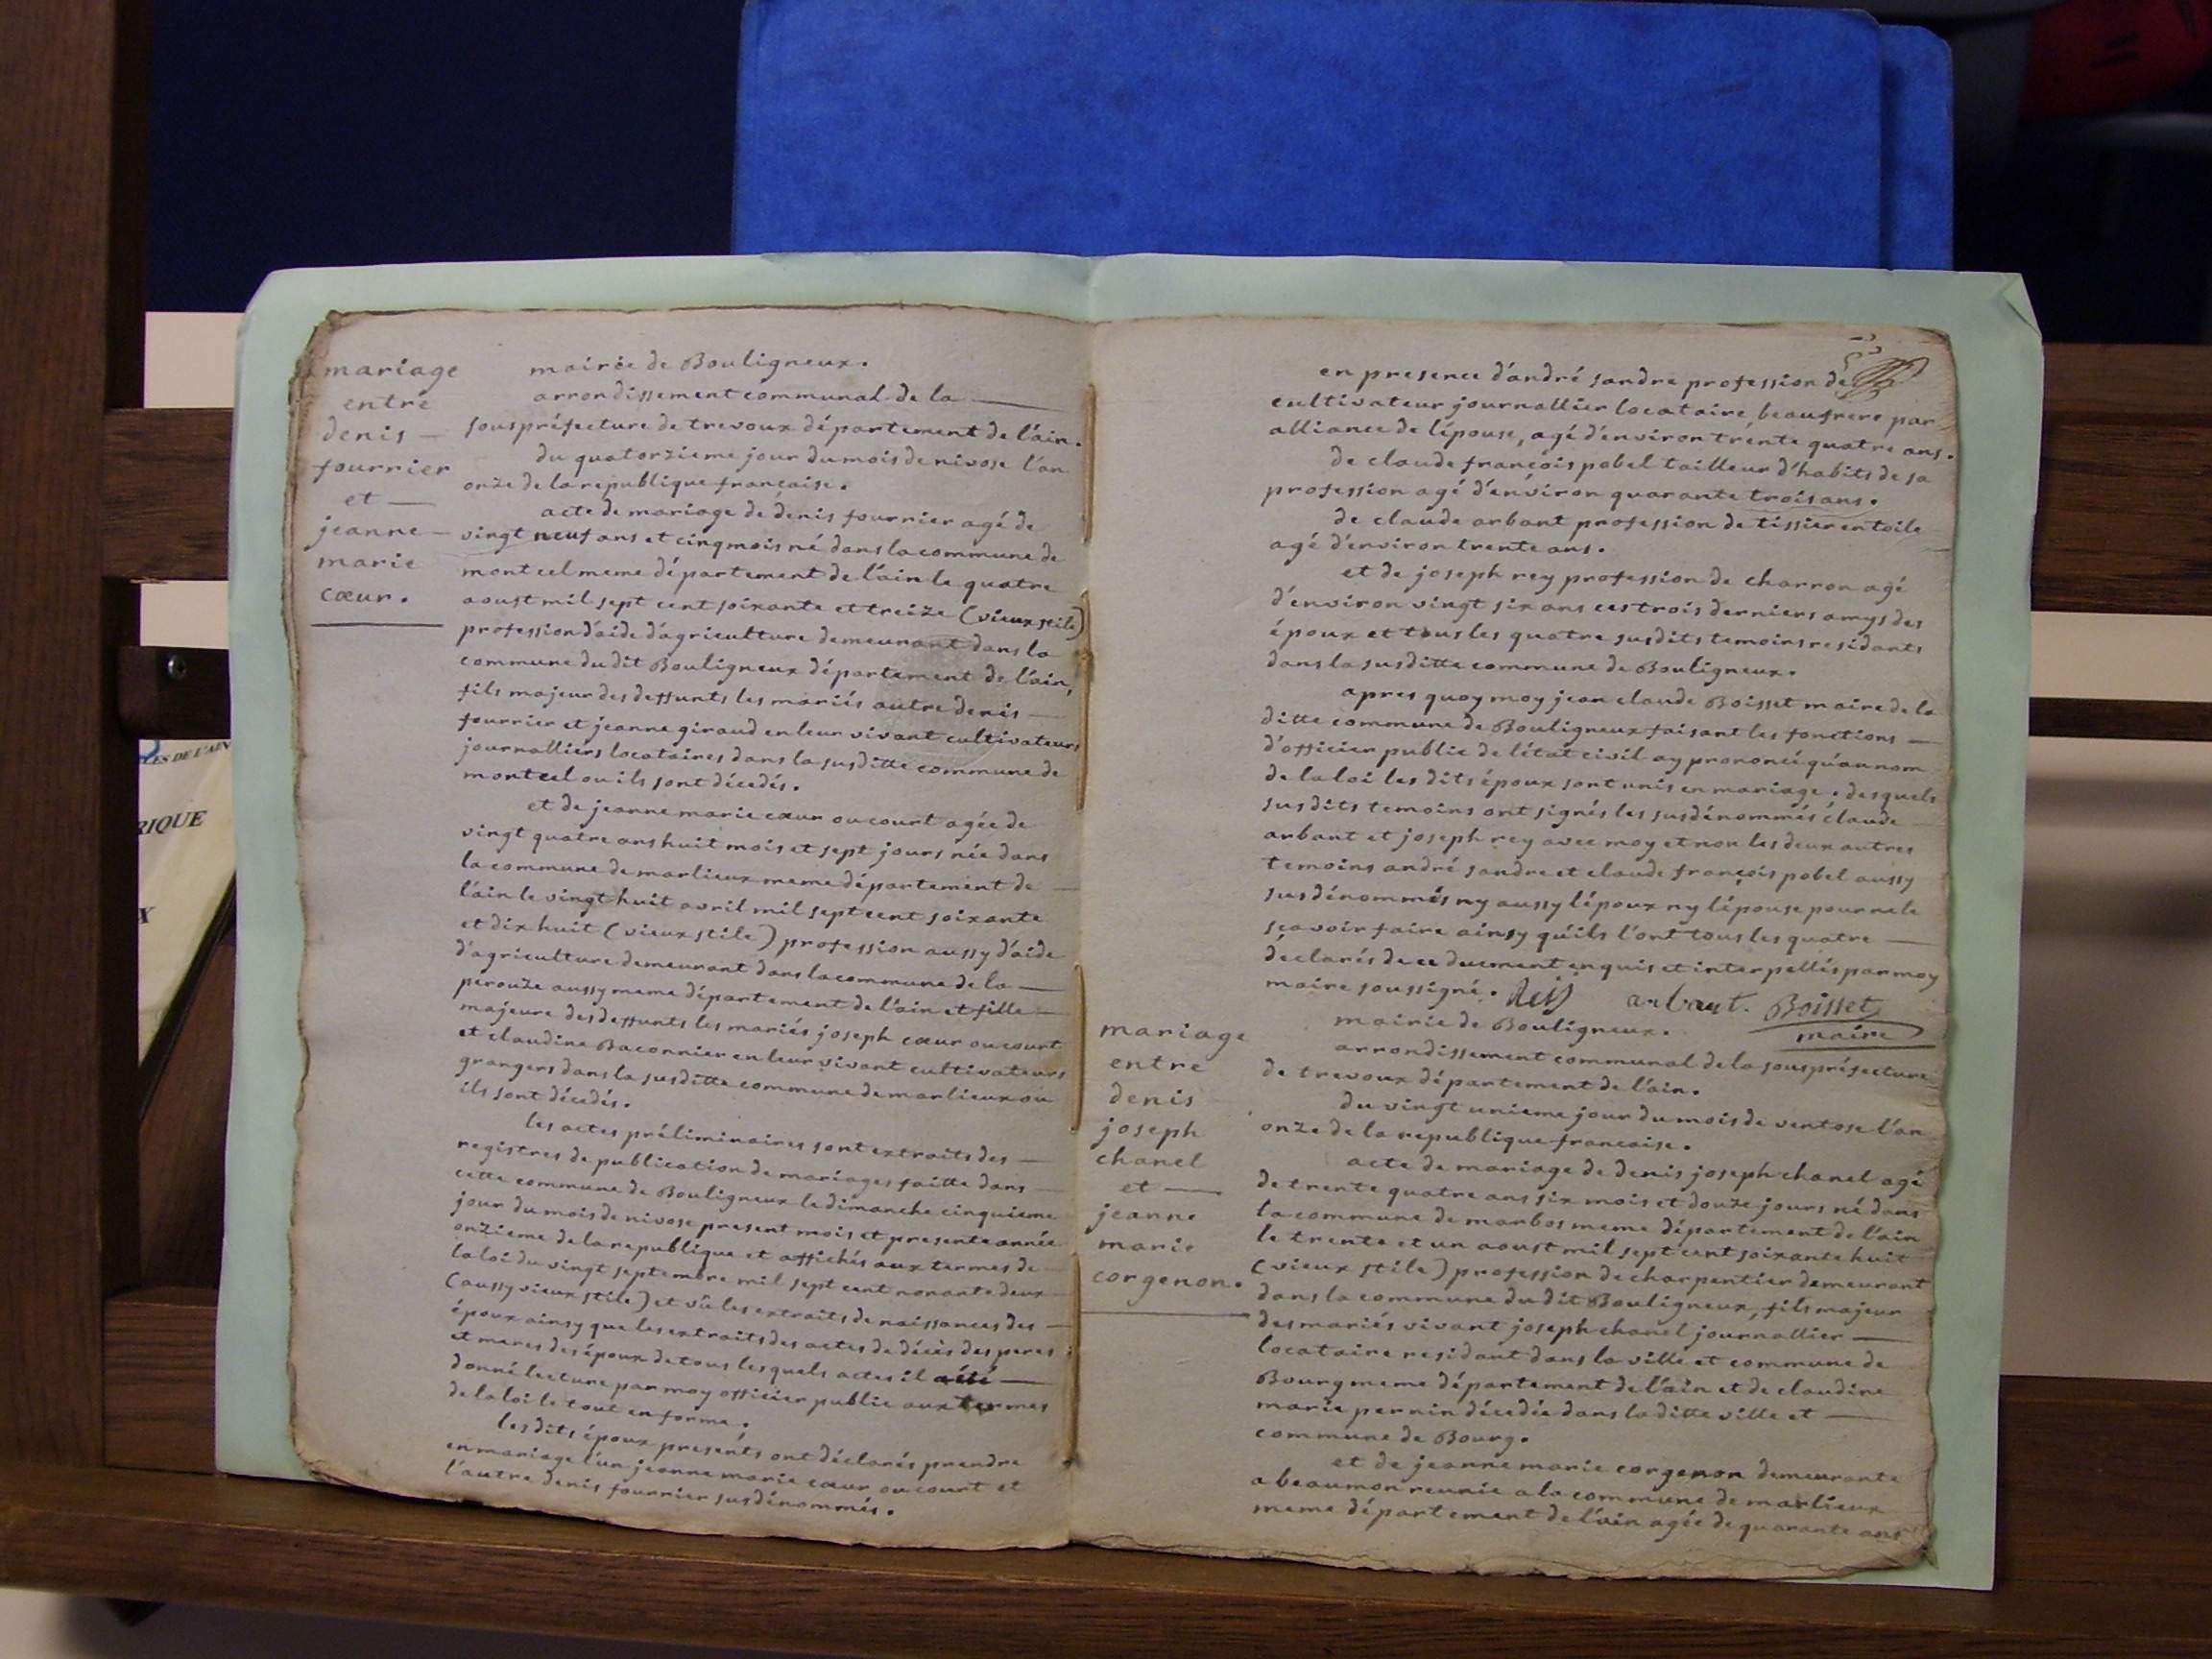 mariage
entre
denis
fournier
et
jeanne
marie
cœur.
mairie de Bouligneux.
arrondissement communal de la
souspréfecture de trevoux département de l'ain.
du quatorzieme jour du mois de nivose l'an
onze de la republique francaise.
acte de mariage de denis fournier agé de
vingt neuf ans et cinq mois né dans la commune de
montcel meme département de l'ain le quatre
aoust mil sept cent soixante et treize (vieux stile)
profession d'aide d'agriculture demeurant dans la
commune du dit Bouligneux département de l'ain,
fils majeur des deffunts les mariés autre denis
fournier et jeanne giraud en leur vivant cultivateurs
journalliers locataires dans la susditte commune de
montcel ou ils sont décedés.
et de jeanne marie cœur ou court agée de
vingt quatre ans huit mois et sept jours née dans
la commune de marlieux meme département de
l'ain le vingt huit avril mil sept cent soixante
et dix huit (vieux stile) profession aussy d'aide
d'agriculture demeurant dans la commune de la
perouze aussy meme département de l'ain et fille
majeure des deffunts les mariés joseph cœur ou court
et claudine Baconnier en leur vivant cultivateurs
grangers dans la susditte commune de marlieux ou
ils sont décedés.
les actes préliminaires sont extraits des
registres de publication de mariages faitte dans
cette commune de Bouligneux le dimanche cinquieme
jour du mois de nivose present mois et presente année
onzieme de la republique et affichés aux termes de
la loi du vingt septembre mil sept cent nonante deux
(aussy vieux stile) et vû les extraits de naissances des
époux ainsy que les extraits des actes de décès des peres
et meres des époux de tous lesquels actes il a été
donné lecture par moy officier public aux termes
de la loi le tout en forme.
les dits époux presents ont déclarés prendre
en mariage l'un jeanne marie cœur ou court et
l'autre denis fournier susdénommés.
en presence d'andré sandre profession de
cultivateur journallier locataire beaufrere par
alliance de l'épouse, agé d'environ trente quatre ans.
de claude françois pobel tailleur d'habits de sa
profession agé d'environ quarante trois ans.
de claude arbant profession de tissier en toile
agé d'environ trente ans.
et de joseph rey profession de charron agé
d'environ vingt six ans ces trois derniers amys des
époux et tous les quatre susdits temoins residants
dans la susditte commune de Bouligneux.
apres quoy moy jean claude Boisset maire de la
ditte commune de Bouligneux faisant les fonctions
d'officier public de l'état civil ay prononcé qu'au nom
de la loi les dits époux sont unis en mariage. desquels
susdits temoins ont signés les susdénommés claude
arbant et joseph rey avec moy et non les deux autres
temoins andré sandre et claude françois pobel aussy
susdénommés ny aussy l'époux ny l'épouse pour ne le
sçavoir faire ainsy qu'ils l'ont tous les quatre
déclarés de ce duement enquis et interpellés par moy
maire soussigné. Rey arbant. Boisset
maire
mariage
entre
denis
joseph
chanel
et
jeanne
marie
corgenon.
mairie de Bouligneux.
arrondissement communal de la souspréfecture
de trevoux département de l'ain.
du vingt unieme jour du mois de ventose l'an
onze de la republique francaise.
acte de mariage de denis joseph chanel agé
de trente quatre ans six mois et douze jours né dans
la commune de marbos meme département de l'ain
le trente et un aoust mil sept cent soixante huit
(vieux stile) profession de charpentier demeurant
dans la commune du dit Bouligneux, fils majeur
des mariés vivant joseph chanel journallier
locataire residant dans la ville et commune de
Bourg meme département de l'ain et de claudine
marie pernin décedée dans la ditte ville et
commune de Bourg.
et de jeanne marie corgenon demeurante
a beaumon reunie a la commune de marlieux
meme département de l'ain agée de quarante ans
LES DE L'AIN
RIQUE
X